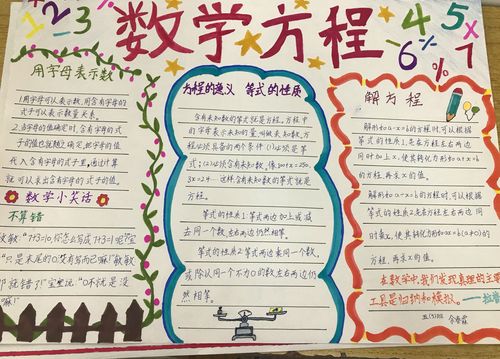 1 2 - 3
数学方程
4 5 6 - % % × 7
用字母表示数
1.用字母可以表示数,用含有字母的
式子可以表示数量关系。
2.当字母的值确定时,含有字母的式
子的值也就随之确定,把字母的值
代入含有字母的式子里,通过计算
就可以求出含有字母的式子的值。
数学小笑话
不算错
"7+3=10,你怎么写成7+3=1呢
"只是末尾的0
就错了!" "0不就是没
方程的意义 等式的性质
含有未知数的等式就是方程。方程中
的字母表示未知的量,叫做未知数,方
程必须具备两个条件(1)必须是等
式;(2)必须含有未知数,像
3x=2.4……这样含有未知数的等式就是
方程。
等式的性质1:等式两边加上或减
去同一个数,左右两边仍然相等。
等式的性质2:等式两边乘同一个数,
或除以同一个不为0的数,左右两边仍
然相等。
解方程
解形如a-x=b的方程时,可以根据
等式的性质1,在方程左右两边
同时加上x,使其转化为形如a+x=b
的方程,再求x的值。
解形如a÷x=b的方程时,可以根据
等式的性质2,在方程左右两边同
时乘x,使其转化为形如
方程,再求x的值。
在数学中,我们发现真理的主要
工具是归纳和模拟。
五(5)班